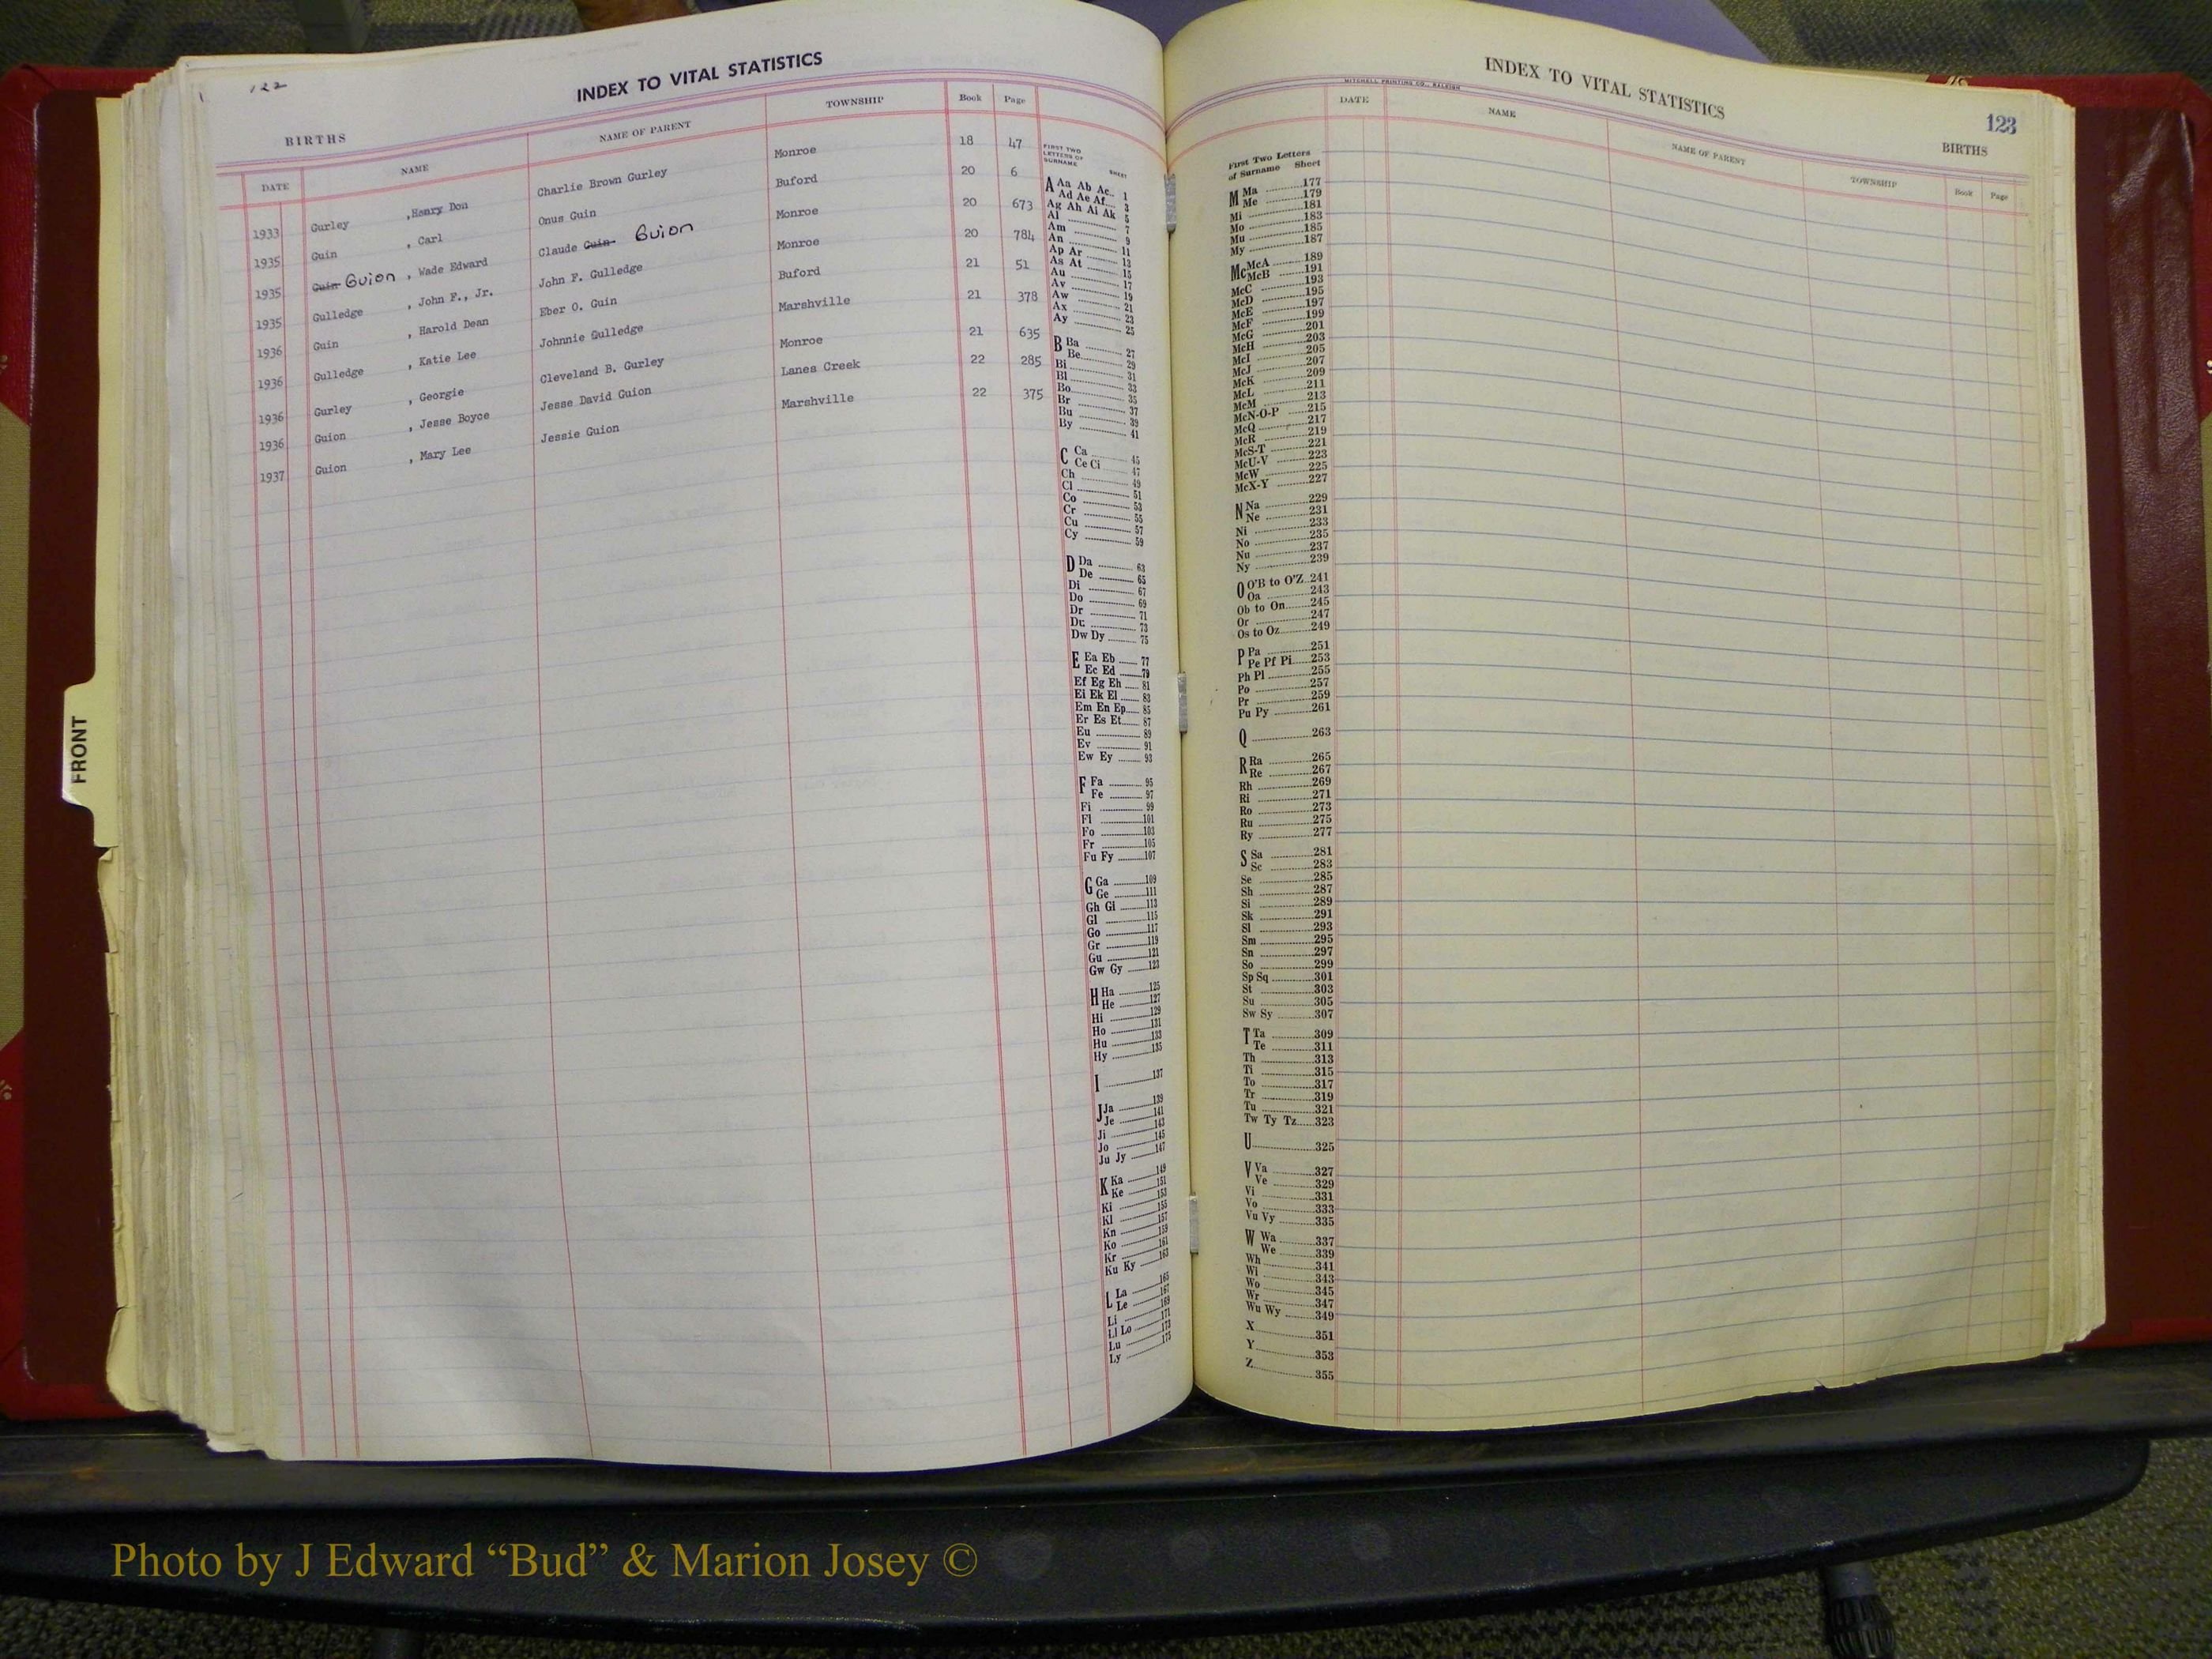 122
INDEX TO VITAL STATISTICS
BIRTHS
DATE NAME NAME OF PARENT TOWNSHIP Book Page
1933 Gurley ,Henry Don Charlie Brown Gurley Monroe 18 47
1935 Guin , Carl Onus Guin Buford 20 6
1935 Guin Guion , Wade Edward Claude Guin Guion Monroe 20 673
1935 Gulledge , John F., Jr. John F. Gulledge Monroe 20 784
1936 Guin , Harold Dean Eber O. Guin Buford 21 51
1936 Gulledge , Katie Lee Johnnie Gulledge Marshville 21 378
1936 Gurley , Georgie Cleveland B. Gurley Monroe 21 635
1936 Guion , Jesse Boyce Jesse David Guion Lanes Creek 22 285
1937 Guion , Mary Lee Jessie Guion Marshville 22 375
FIRST TWO
LETTERS OF
SURNAME SHEET
A Aa Ab Ac 1
Ad Ae Af 3
Ag Ah Ai Ak 5
Al 7
Am 9
An 11
Ap Ar 13
As At 15
Au 17
Av 19
Aw 21
Ax 23
Ay 25
B Ba 27
Be 29
Bi 31
Bl 33
Bo 35
Br 37
Bu 39
By 41
C Ca 45
Ce Ci 47
Ch 49
Cl 51
Co 53
Cr 55
Cu 57
Cy 59
D Da 63
De 65
Di 67
Do 69
Dr 71
Du 73
Dw Dy 75
E Ea Eb 77
Ec Ed 79
Ef Eg Eh 81
Ei Ek El 83
Em En Ep 85
Er Es Et 87
Eu 89
Ev 91
Ew Ey 93
F Fa 95
Fe 97
Fi 99
Fl 101
Fo 103
Fr 105
Fu Fy 107
G Ga 109
Ge 111
Gh Gi 113
Gl 115
Go 117
Gr 119
Gu 121
Gw Gy 123
H Ha 125
He 127
Hi 129
Ho 131
Hu 133
Hy 135
I 137
J Ja 139
Je 141
Ji 143
Jo 145
Ju Jy 147
K Ka 149
Ke 151
Ki 153
Kl 155
Kn 157
Ko 159
Kr 161
Ku Ky 163
L La 165
Le 167
Li 169
Ll Lo 171
Lu 173
Ly 175
FRONT
MITCHELL PRINTING CO., RALEIGH
INDEX TO VITAL STATISTICS
123
BIRTHS
DATE NAME NAME OF PARENT TOWNSHIP Book Page
First Two Letters
of Surname Sheet
M Ma 177
Me 179
Mi 181
Mo 183
Mu 185
My 187
Mc McA 189
McB 191
McC 193
McD 195
McE 197
McF 199
McG 201
McH 203
McI 205
McJ 207
McK 209
McL 211
McM 213
McN-O-P 215
McQ 217
McR 219
McS-T 221
McU-V 223
McW 225
McX-Y 227
N Na 229
Ne 231
Ni 233
No 235
Nu 237
Ny 239
O O'B to O'Z 241
Oa 243
Ob to On 245
Or 247
Os to Oz 249
P Pa 251
Pe Pf Pi 253
Ph Pl 255
Po 257
Pr 259
Pu Py 261
Q 263
R Ra 265
Re 267
Rh 269
Ri 271
Ro 273
Ru 275
Ry 277
S Sa 281
Sc 283
Se 285
Sh 287
Si 289
Sk 291
Sl 293
Sm 295
Sn 297
So 299
Sp Sq 301
St 303
Su 305
Sw Sy 307
T Ta 309
Te 311
Th 313
Ti 315
To 317
Tr 319
Tu 321
Tw Ty Tz 323
U 325
V Va 327
Ve 329
Vi 331
Vo 333
Vu Vy 335
W Wa 337
We 339
Wh 341
Wi 343
Wo 345
Wr 347
Wu Wy 349
X 351
Y 353
Z 355
Photo by J Edward “Bud” & Marion Josey ©